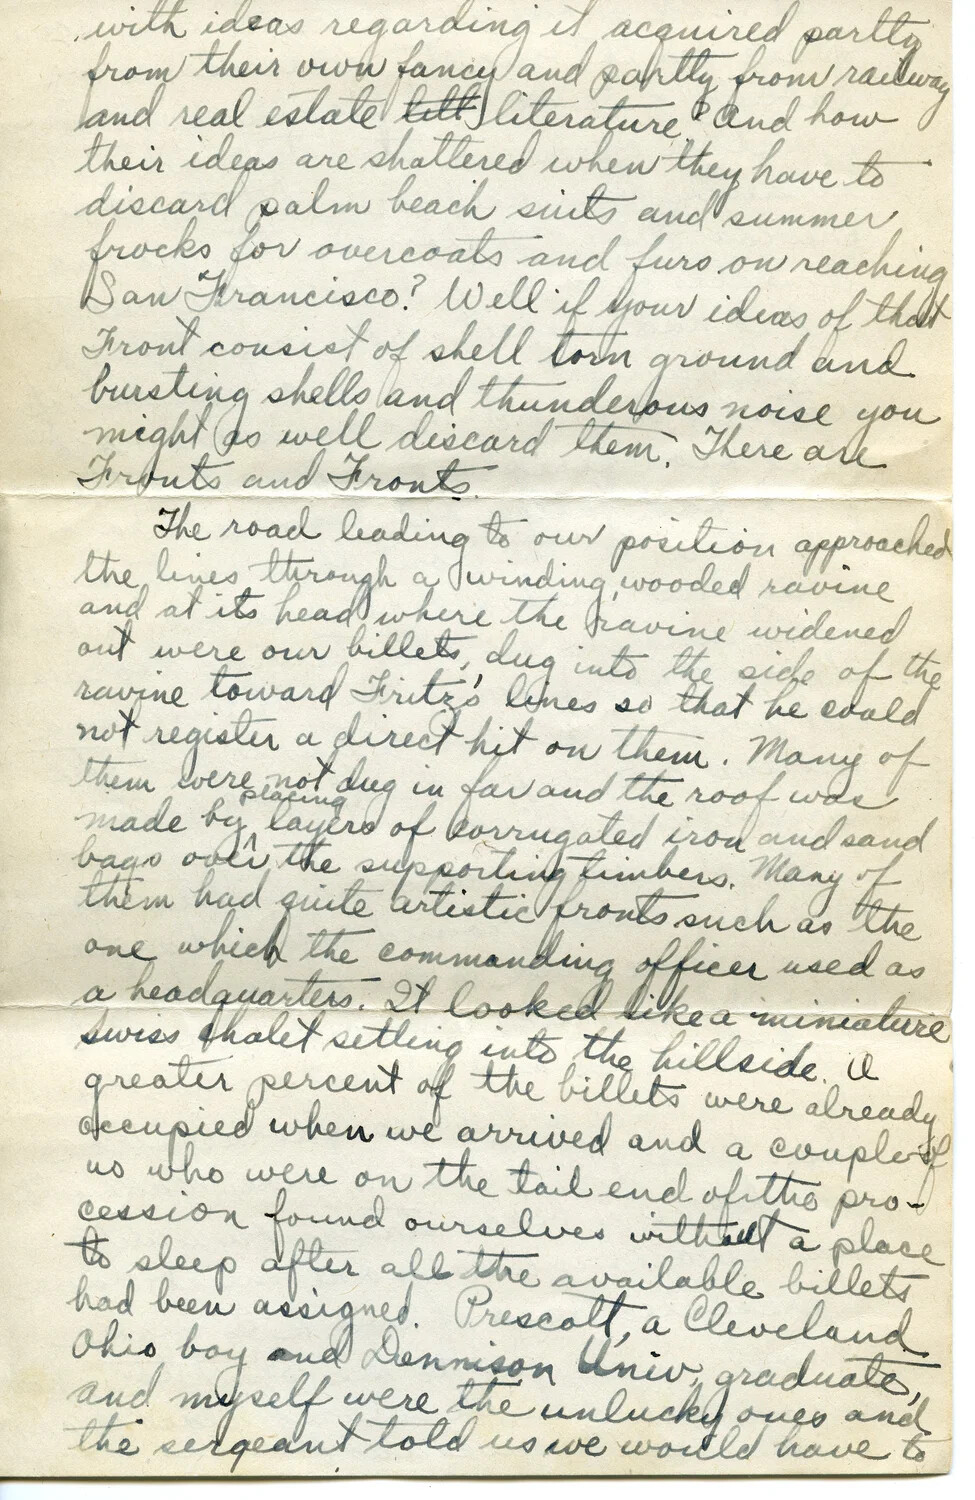 with ideas regarding it acquired partly
from their own fancy and partly from railway
and real estate litt literature? And how
their ideas are shattered when they have to
discard palm beach suits and summer
frocks for overcoats and furs on reaching
San Francisco? Well if your ideas of that
Front consist of shell torn ground and
bursting shells and thunderous noise you
might as well discard them. There are
Fronts and Fronts.
The road leading to our position approached
the lines through a winding, wooded ravine
and at its head where the ravine widened
out were our billets, dug into the side of the
ravine toward Fritz's lines so that he could
not register a direct hit on them. Many of
them were not dug in far and the roof was
made by placing layers of corrugated iron and sand
bags over the supporting timbers. Many of
them had quite artistic fronts such as the
one which the commanding officer used as
a headquarters. It looked like a miniature
swiss chalet setting into the hillside. A
greater percent of the billets were already
occupied when we arrived and a couple of
us who were on the tail end of the pro-
cession found ourselves without a place
to sleep after all the available billets
had been assigned. Prescott, a Cleveland
Ohio boy and Dennison Univ. graduate,
and myself were the unlucky ones and
the sergeant told us we would have to